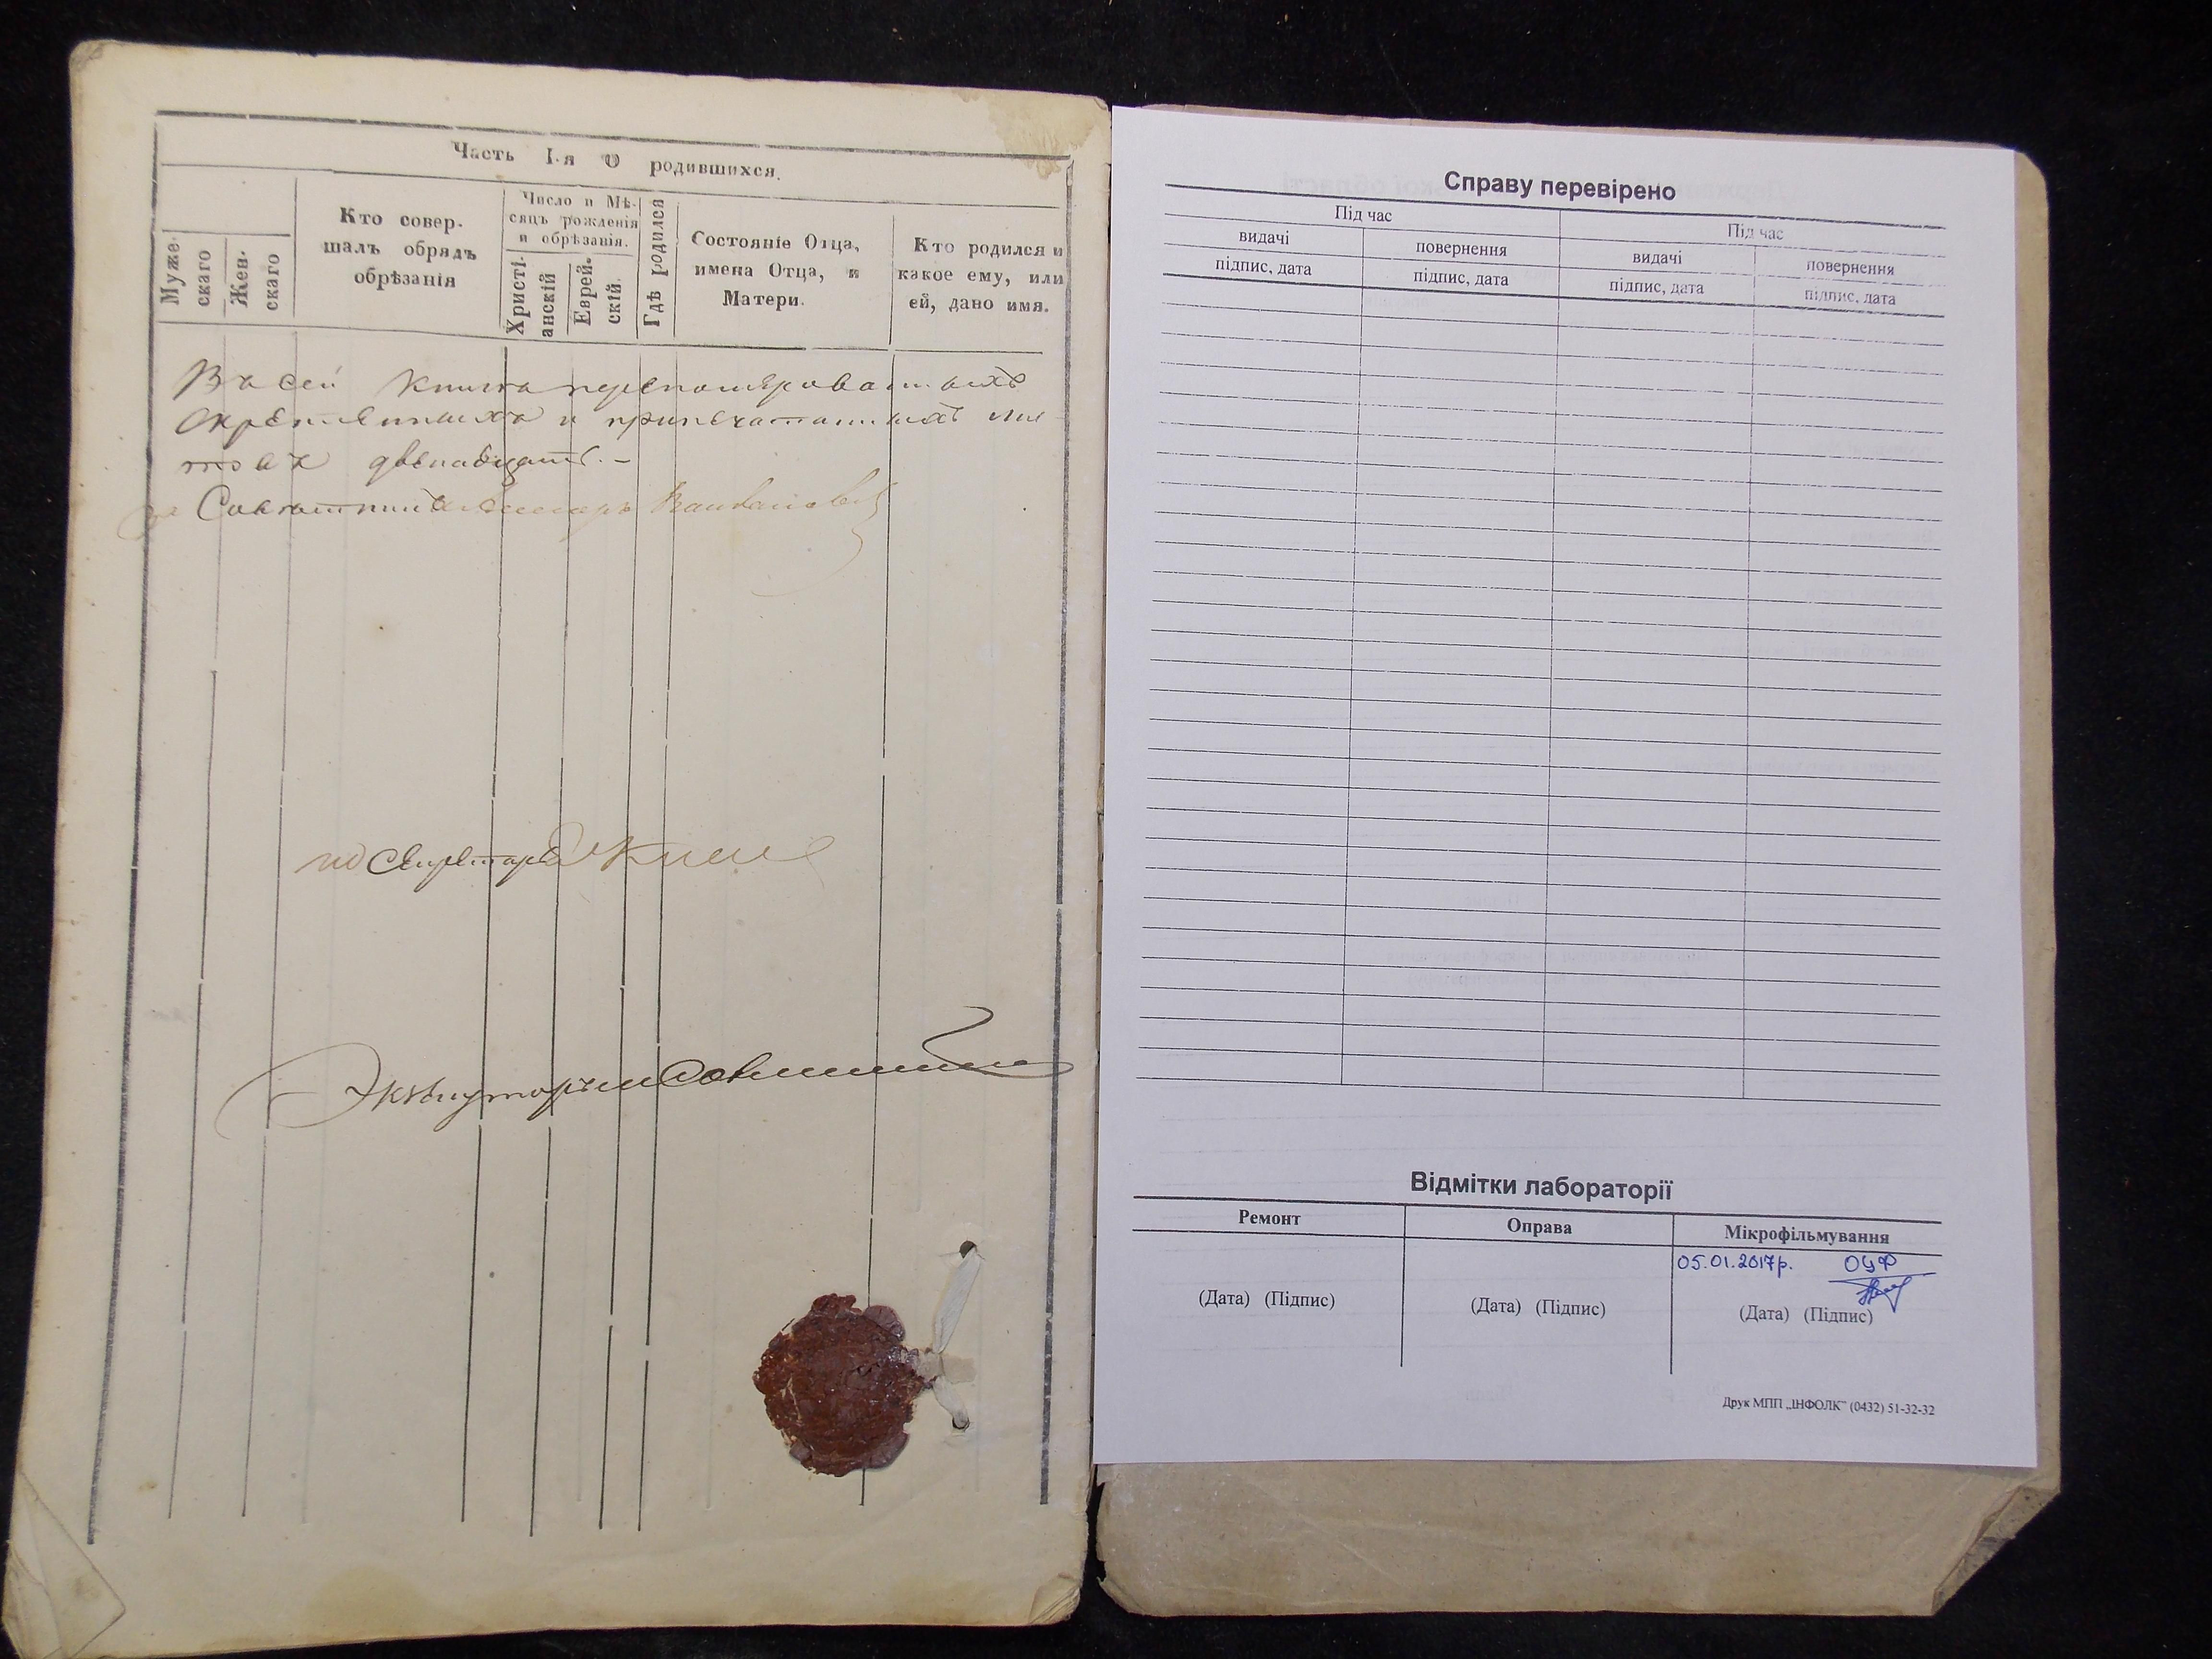 Часть I-я О родившихся.
Муже-
скаго
Жен-
скаго
Кто совер-
шалъ обрядъ
обрѣзанія
Число и Мѣ-
сяцъ рожденія
и обрѣзанія.
Христі-
анскій
Еврей-
скій.
Гдѣ родился
Состояніе Отца,
имена Отца, и
Матери.
Кто родился и
какое ему, или
ей, дано имя.
В сей книга перенумерованныхъ
скрепленныхъ и припечатанныхъ лис-
тоах двенадцать. –
Советникъ
ид Секретаря
Экзекуторъ
Справу перевірено
Під час
Під час
видачі
повернення
видачі
повернення
підпис, дата
підпис, дата
підпис, дата
підпис, дата
Відмітки лабораторії
Ремонт
Оправа
Мікрофільмування
05.01.2017р. ОЦФ
(Дата) (Підпис)
(Дата) (Підпис)
(Дата) (Підпис)
Друк МПП „ІНФОЛК” (0432) 51-32-32